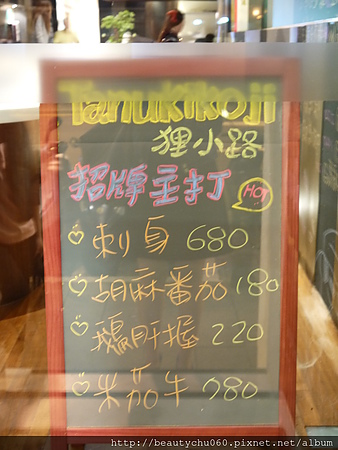 Tanukikoji
狸小路
招牌主打 Hot
刺身 680
胡麻番茄 180
鵝肝握 220
朱茄牛 980
http://beautychu060.pixnet.net/album